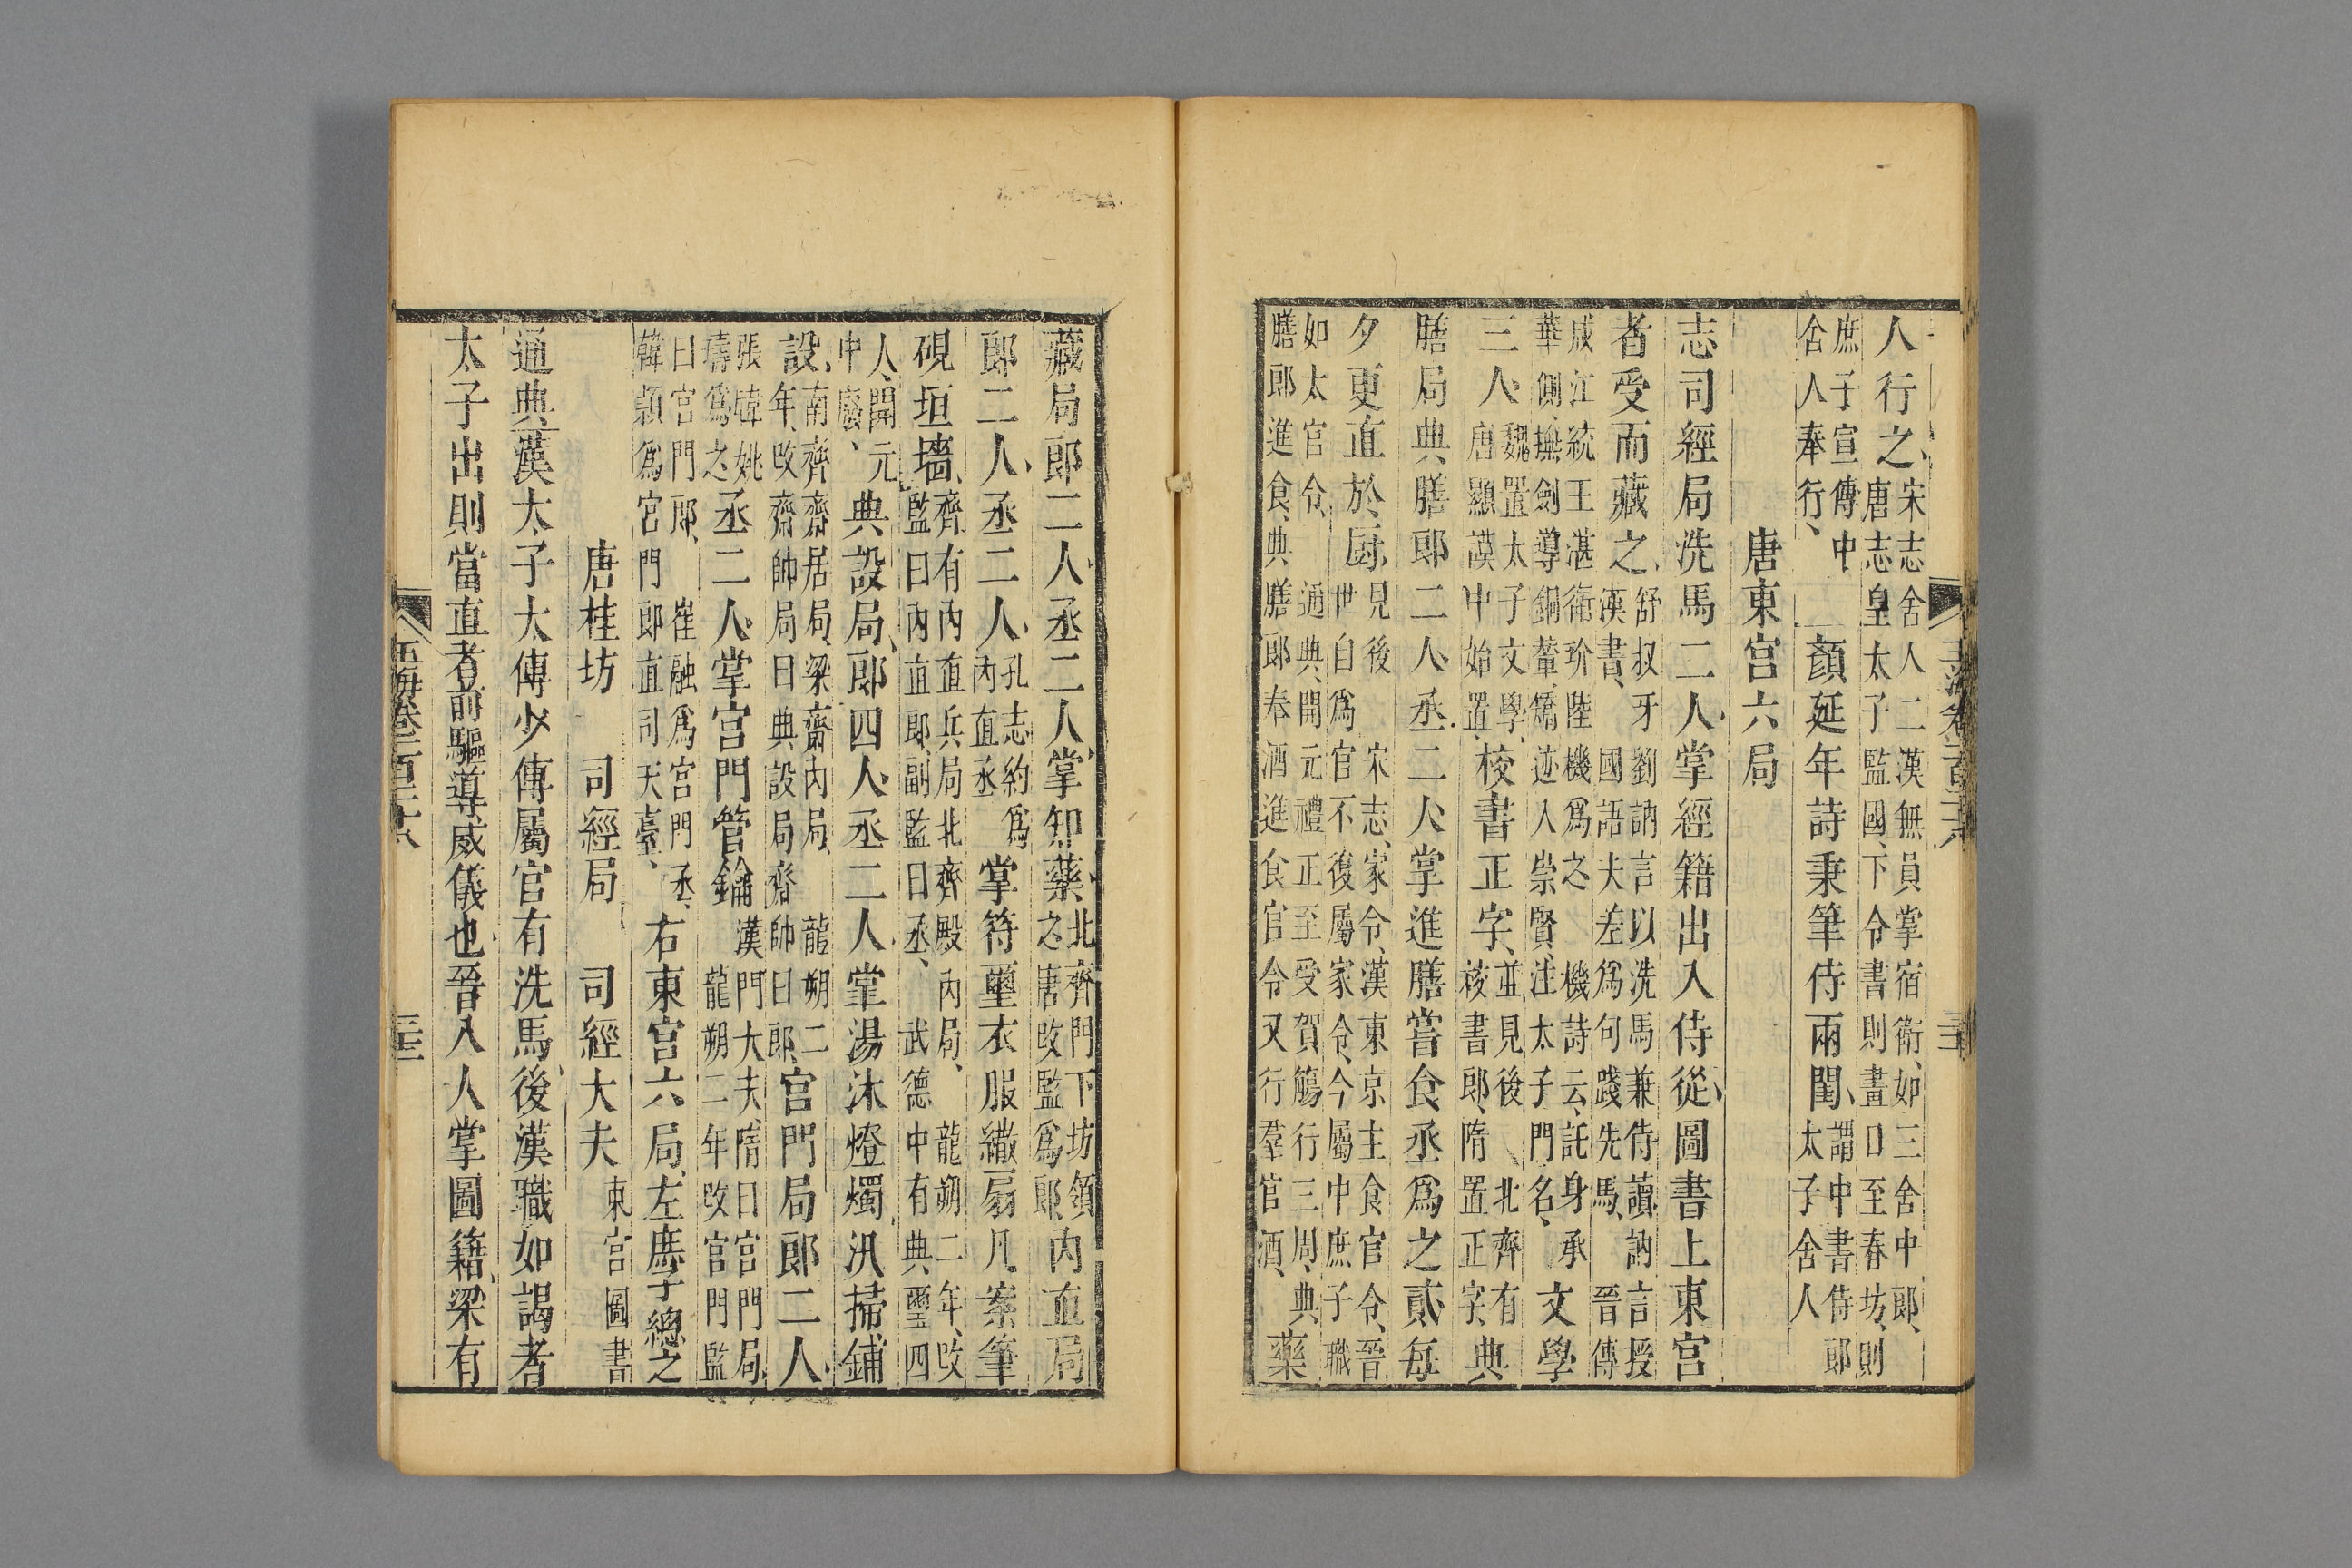 人行之宋志舍人二漢無員掌宿衛如三舍中郎唐志皇太子監國下令書則畫日至春坊則
庶子宣傳中舍人奉行顏延年詩秉筆侍兩閨謂中書侍郎太子舍人
唐東宮六局
志司經局洗馬二人掌經籍出入侍從圖書上東宮
者受而藏之舒叔牙劉訥言以洗馬兼侍讀訥言授漢書國語夫差為何踐先馬晉傳
咸江統王湛衛玠陸機為之機詩云託身承華側撫劍導銅輦矯迹人崇賢注太子門名文學
三人魏置太子文學唐顯謨中始置校書正字並見後北齊有校書郎隋置正字典
膳局典膳郎二人丞二人掌進膳嘗食丞為之貳每
夕更直於厨見後宋志家令漢東京主食官令晉世自為官不復屬家令今屬中庶子職
如太官令通典開元禮正至受賀觴行三周典膳郎進食典膳郎奉酒進食官令又行羣官酒藥
藏局郎二人丞二人掌知藥北齊門下坊領之唐改監為郎内直局
郎二人丞二人孔志約為内直丞掌符璽衣服繖扇几案筆
硯垣墻齊有内直兵局北齊殿内局龍朔二年改監曰内直郎副監曰丞武德中有典璽四
人開元中廢典設局郎四人丞二人掌湯沐燈燭汎掃鋪
設南齊齋居局梁齋内局龍朔二年改齋帥局曰典設局齋帥曰郎宮門局郎二人
張暐姚璹為之丞二人掌宮門管鑰漢門大夫隋曰宮門局龍朔二年改宮門監
曰宮門郎崔融為宮門丞韓頴為宮門郎直司天臺右東宮六局左庶子總之
唐桂坊　司經局　司經大夫東宮圖書
通典漢太子太傅少傅屬官有洗馬後漢職如謁者
太子出則當直者前驅導威儀也晉八人掌圖籍梁有
玉海卷一百二十八